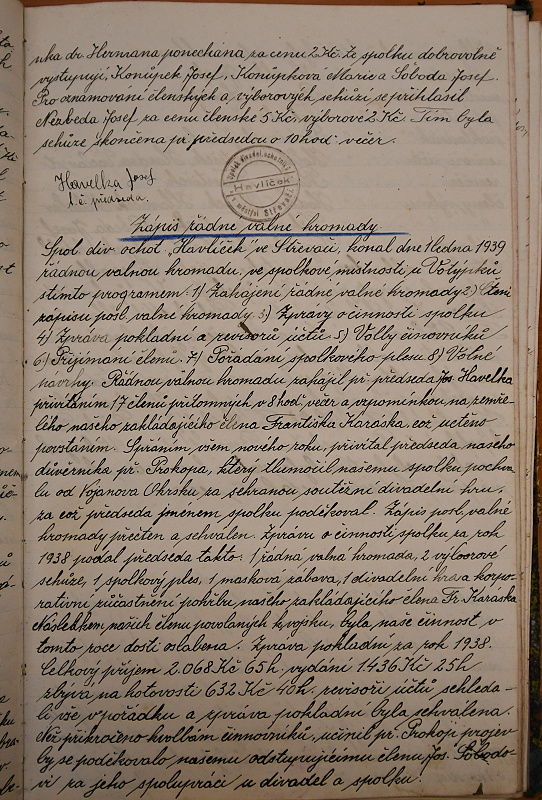 nka dr. Hermana ponechána za cenu 2 Kč. Ze spolku dobrovolně
vystupují, Konůpek Josef, Konůpková Marie a Soboda Josef.
Pro oznamování členských a výborových schůzí se přihlásil
Nezbeda Josef za cenu členské 5 Kč, výborové 2 Kč. Tím byla
schůze skončena př. předsedou o 10 hod. večer.
Havelka Josef
t. č. předseda.
Havlíček
Zápis řádné valné hromady
Spol. div. ochot. „Havlíček" ve Střevači, konal dne 1 ledna 1939
řádnou valnou hromadu, ve spolkové místnosti u Votýpků
s tímto programem. 1) Zahájení řádné valné hromady 2) Čtení
zápisu posl. valné hromady 3) Zprávy o činnosti spolku
4) Zpráva pokladní a revisorů účtů. 5) Volby činovníků
6) Přijímaní členů. 7) Pořádání spolkového plesu 8) Volné
návrhy. Řádnou valnou hromadu zahájil př. předseda Jos. Havelka
přivítáním 17 členů přítomných v 8 hod večer a vzpomínkou na zemře-
lého našeho zakládajícího člena Františka Karáska, což uctěno
povstáním. S přáním všem nového roku, přivítal předseda našeho
důvěrníka př. Prokopa, který tlumočil našemu spolku pochva-
lu od Vojanova Okrsku za sehranou soutěžní divadelní hru,
za což předseda jmenem spolku poděkoval. Zápis posl. valné
hromady přečten a schválen. Zprávu o činnosti spolku za rok
1938 podal předseda takto: 1 řádná valná hromada, 2 výborové
schůze, 1 spolkový ples, 1 maskova zábava, 1 divadelní hra a korpo-
rativní zúčastnění pohřbu našeho zakládajícího člena Fr. Karáska
Následkem našich členu povolaných k vojsku, byla naše činnost v
tomto roce dosti oslabena. Zpráva pokladní za rok 1938.
Celkový příjem 2.068 Kč 65 h. vydání 1.436 Kč 25 h
zbývá na hotovosti 632 Kč 40 h. revisoři účtů shleda-
li vše v pořádku a zpráva pokladní byla schválena.
Než přikročeno k volbám činovníků, učinil př. Prokop projev
by se poděkovalo našemu odstupujícímu členu Jos. Sobodo-
vi za jeho spolupráci u divadel a spolku.